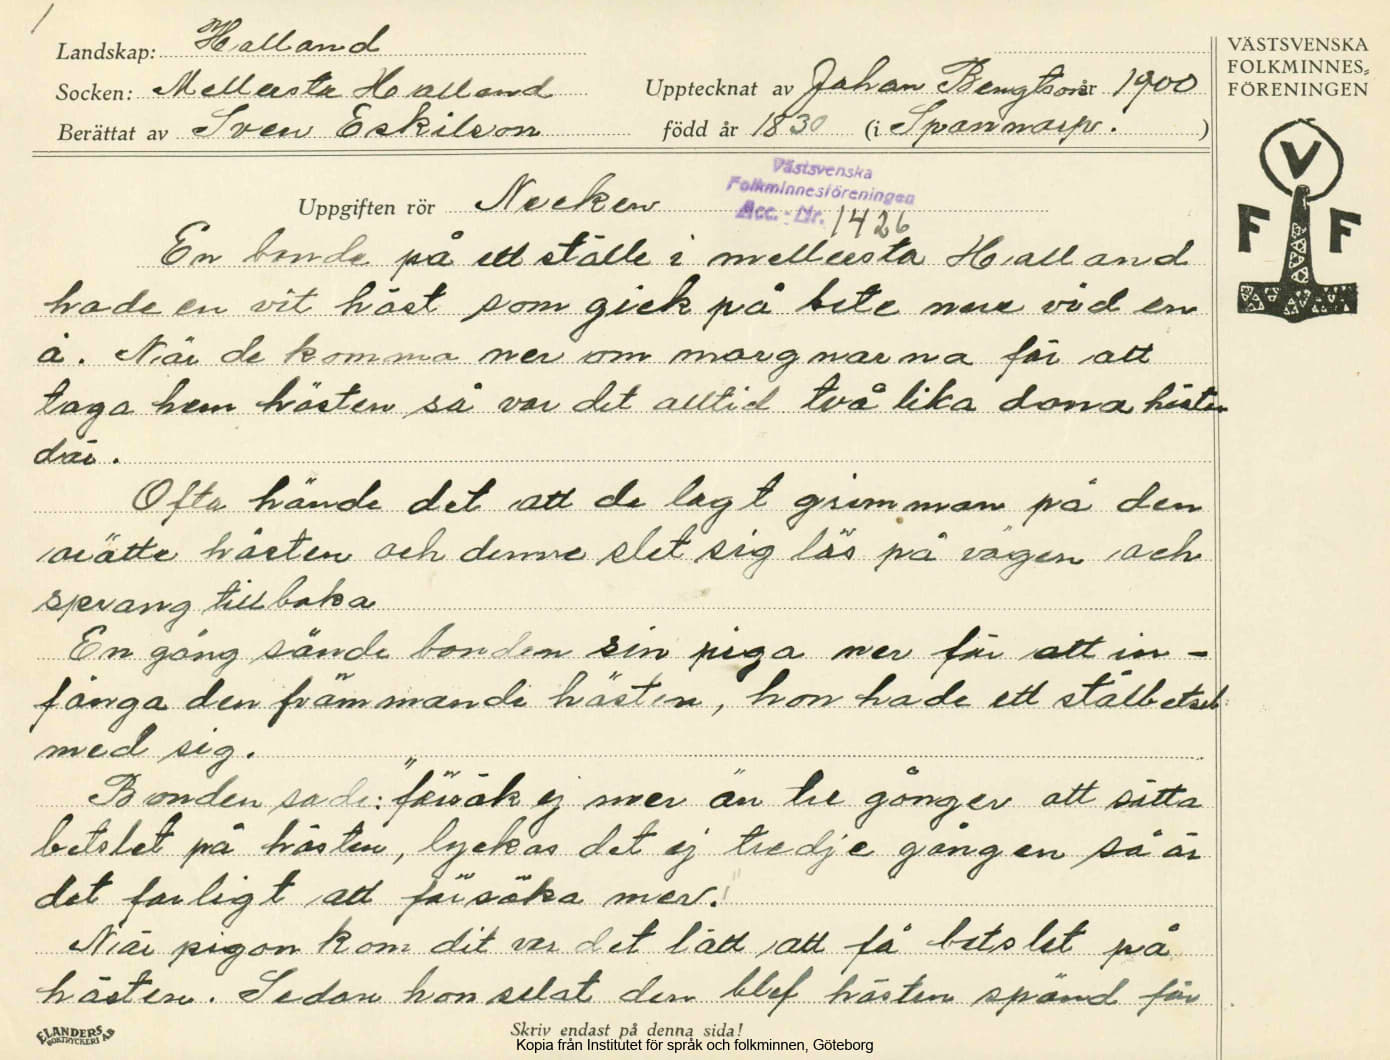 1
Landskap: Halland
Socken: Mellersta Halland
Upptecknat av Johan Bengtson år 1900
Berättat av Sven Eskilson
född år 1830 (i Spannarp. )
VÄSTSVENSKA
FOLKMINNES-
FÖRENINGEN
V
F F
Västsvenska
Folkminnesföreningen
Acc. - Nr. 1426
Uppgiften rör Necken
En bonde på ett ställe i mellersta Halland
hade en vit häst som gick på bete nere vid en
å. När de komma ner om morgnarna för att
taga hem hästen så var det alltid två lika dana hästar
där.
Ofta hände det att de lagt grimman på den
orätte hästen och denne slet sig lös på vägen och
sprang tillbaka
En gång sände bonden sin piga ner för att in-
fånga den främmande hästen, hon hade ett stålbetsel
med sig.
Bonden sade: "försök ej mer än tre gånger att sätta
betslet på hästen, lyckas det ej tredje gången så är
det farligt att försöka mer."
När pigan kom dit var det lätt att få betslet på
hästen. Sedan hon selat den blef hästen spänd för
ELANDERS
BOKTRYCKERI AB
Skriv endast på denna sida!
Kopia från Institutet för språk och folkminnen, Göteborg